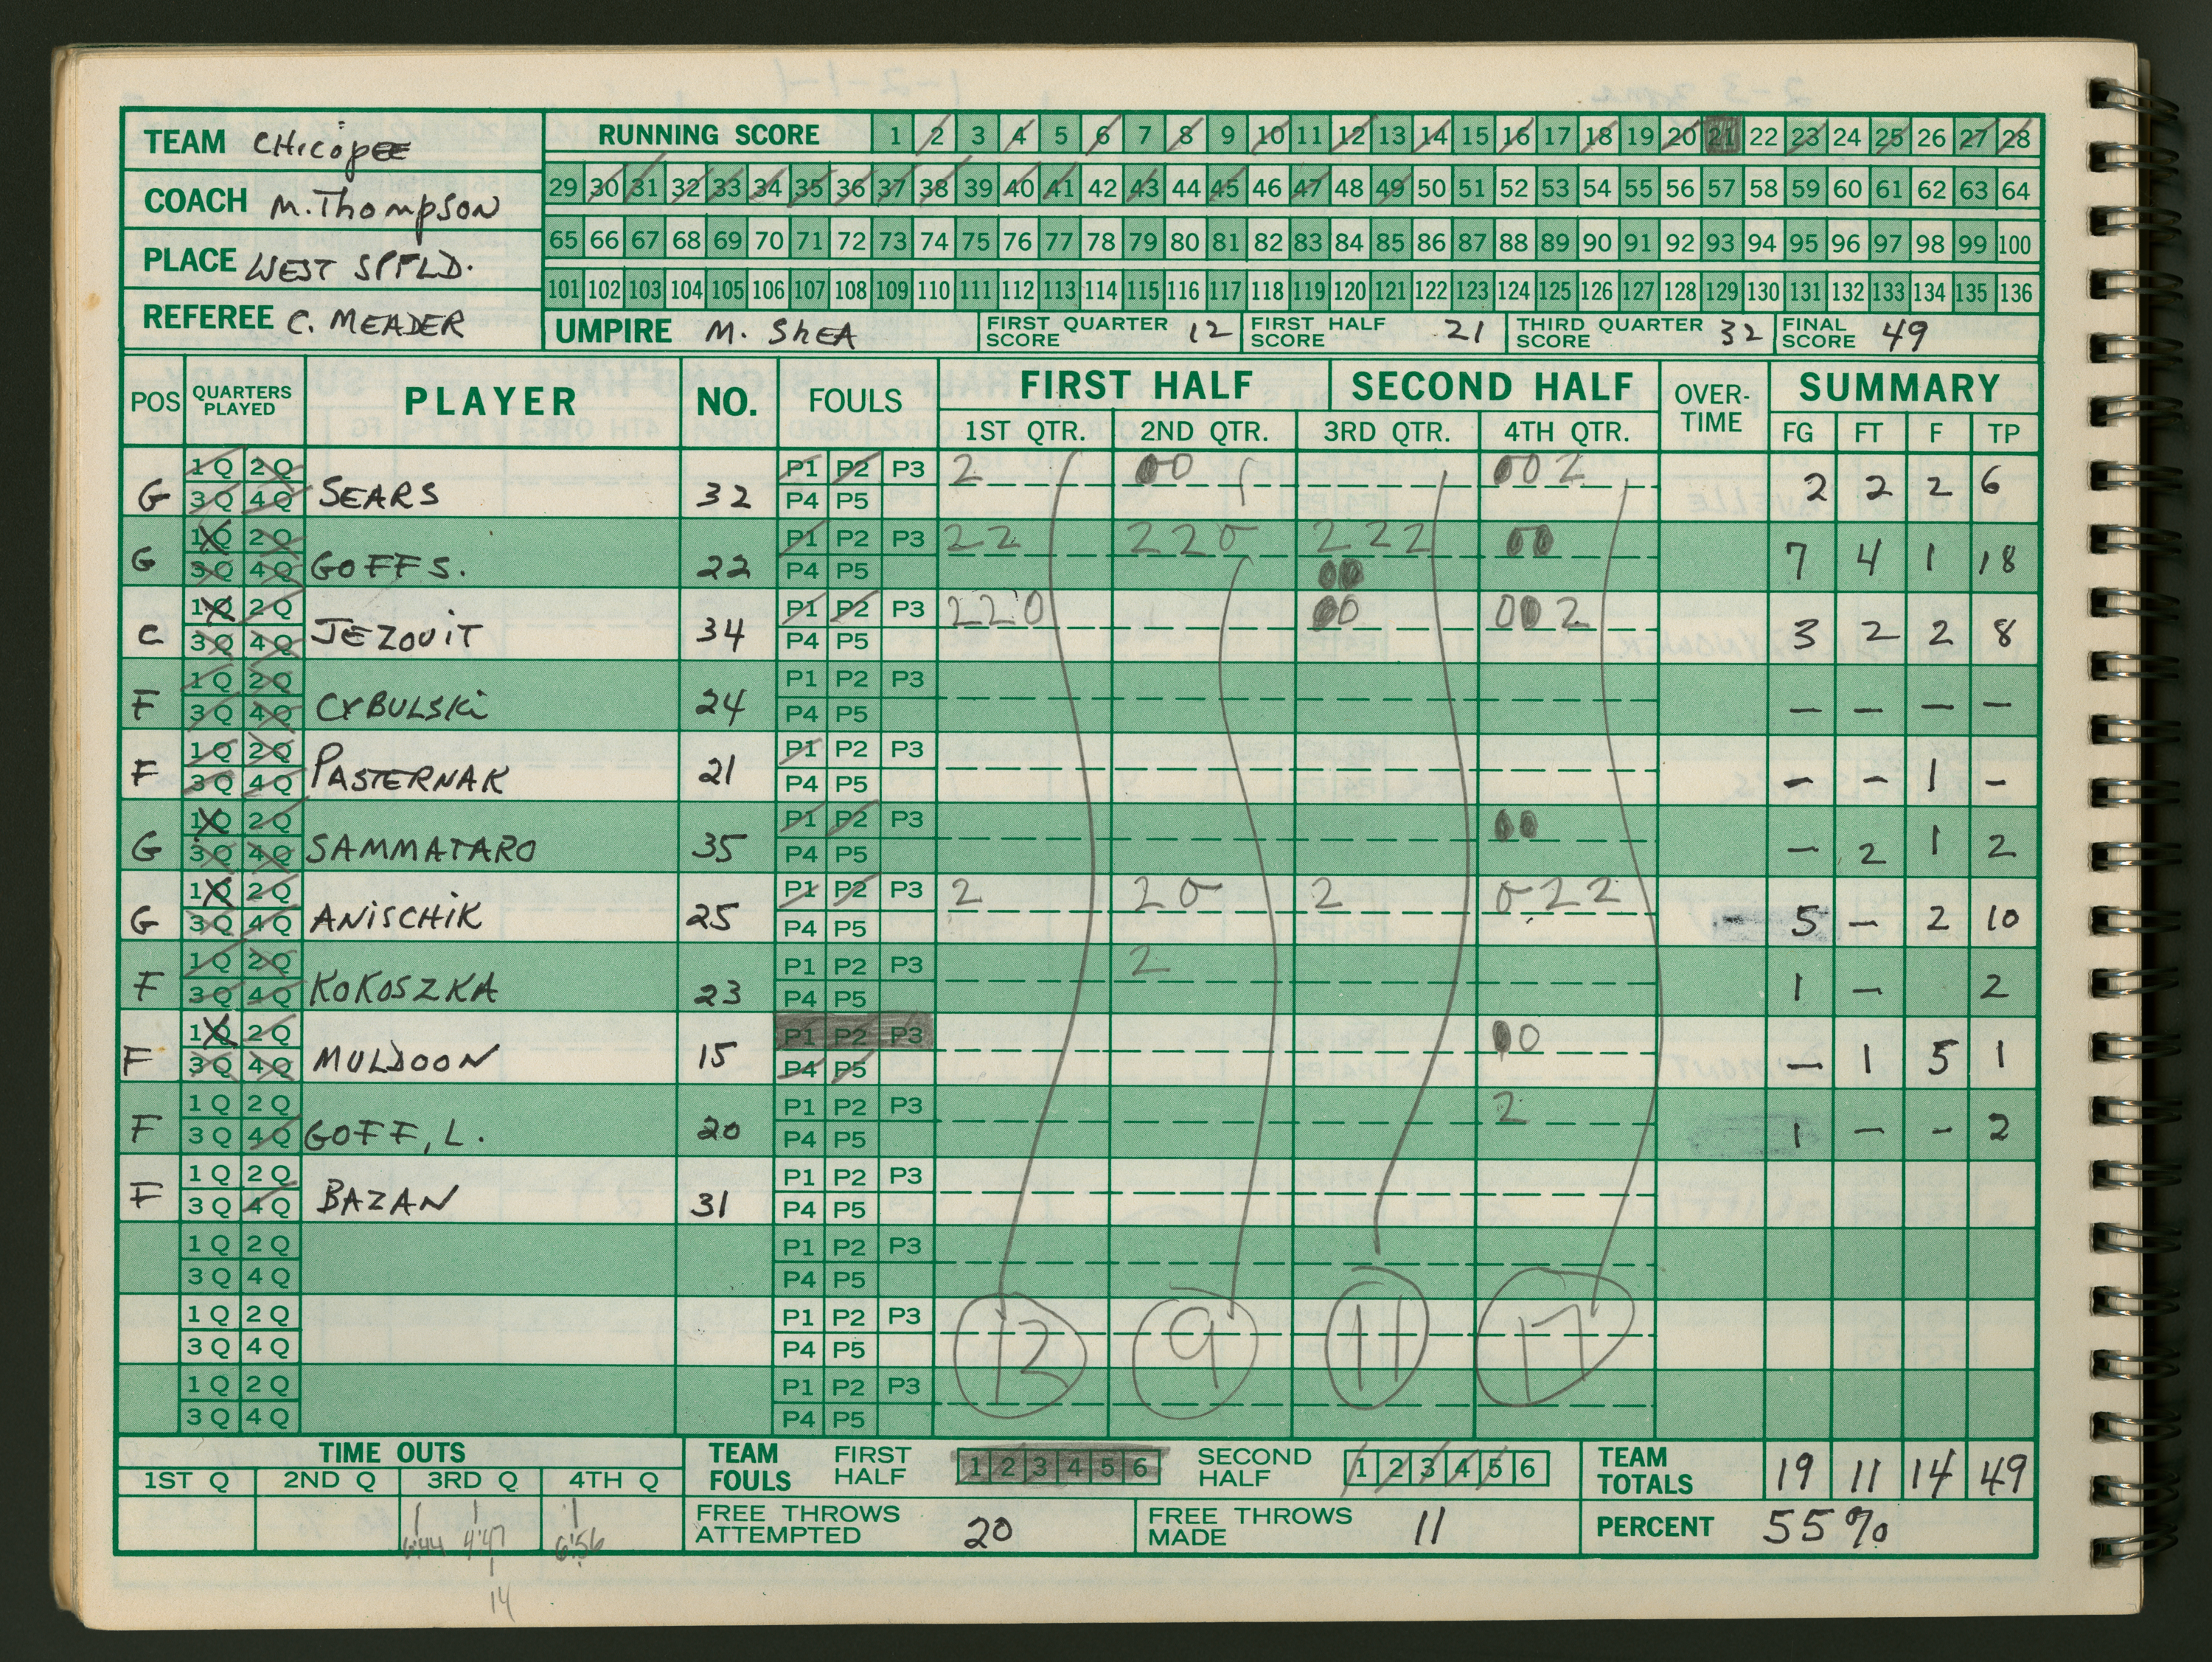 TEAM CHICOPEE
COACH M. THOMPSON
PLACE WEST SPFLD.
REFEREE C. MEADER
RUNNING SCORE 1 2 3 4 5 6 7 8 9 10 11 12 13 14 15 16 17 18 19 20 21 22 23 24 25 26 27 28
29 30 31 32 33 34 35 36 37 38 39 40 41 42 43 44 45 46 47 48 49 50 51 52 53 54 55 56 57 58 59 60 61 62 63 64
65 66 67 68 69 70 71 72 73 74 75 76 77 78 79 80 81 82 83 84 85 86 87 88 89 90 91 92 93 94 95 96 97 98 99 100
101 102 103 104 105 106 107 108 109 110 111 112 113 114 115 116 117 118 119 120 121 122 123 124 125 126 127 128 129 130 131 132 133 134 135 136
UMPIRE M. SHEA FIRST QUARTER SCORE 12 FIRST HALF SCORE 21 THIRD QUARTER SCORE 32 FINAL SCORE 49
POS QUARTERS PLAYED PLAYER NO. FOULS FIRST HALF SECOND HALF OVER-TIME SUMMARY
1ST QTR. 2ND QTR. 3RD QTR. 4TH QTR. FG FT F TP
1Q 2Q P1 P2 P3 2 00 002
G 3Q 4Q SEARS 32 P4 P5 2 2 2 6
1Q 2Q P1 P2 P3 22 220 222 00
G 3Q 4Q GOFF S. 22 P4 P5 00 7 4 1 18
1Q 2Q P1 P2 P3 220 00 002
C 3Q 4Q JEZOUIT 34 P4 P5 3 2 2 8
1Q 2Q P1 P2 P3
F 3Q 4Q CYBULSKI 24 P4 P5 — — — —
1Q 2Q P1 P2 P3
F 3Q 4Q PASTERNAK 21 P4 P5 — — 1 —
1Q 2Q P1 P2 P3 00
G 3Q 4Q SAMMATARO 35 P4 P5 — 2 1 2
1Q 2Q P1 P2 P3 2 20 2 022
G 3Q 4Q ANISCHIK 25 P4 P5 5 — 2 10
1Q 2Q P1 P2 P3 2
F 3Q 4Q KOKOSZKA 23 P4 P5 1 — 2
1Q 2Q P1 P2 P3 00
F 3Q 4Q MULDOON 15 P4 P5 — 1 5 1
1Q 2Q P1 P2 P3 2
F 3Q 4Q GOFF, L. 20 P4 P5 1 — - 2
1Q 2Q P1 P2 P3
F 3Q 4Q BAZAN 31 P4 P5
1Q 2Q P1 P2 P3
3Q 4Q P4 P5
1Q 2Q P1 P2 P3
3Q 4Q P4 P5
12 9 11 17
1Q 2Q P1 P2 P3
3Q 4Q P4 P5
TIME OUTS TEAM FOULS FIRST HALF 1 2 3 4 5 6 SECOND HALF 1 2 3 4 5 6 TEAM TOTALS 19 11 14 49
1ST Q 2ND Q 3RD Q 4TH Q
6:44 4:47 6:56 FREE THROWS ATTEMPTED 20 FREE THROWS MADE 11 PERCENT 55%
14